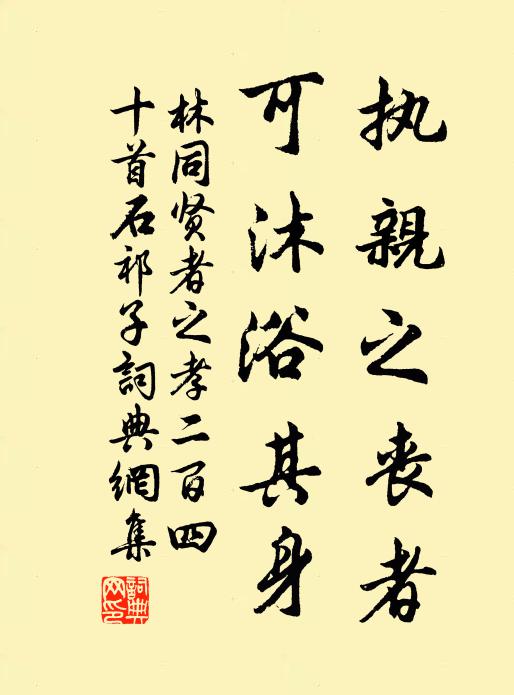 执親之丧者
可沐浴其身
林同贤者之孝二百四
十首石祁子詞典網集